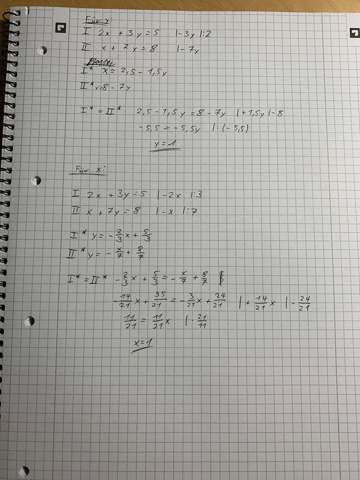 Für y
I 2x + 3y = 5 |-3y |:2
II x + 7y = 8 |-7y
I* x = 2,5 - 1,5y
II* x = 8 - 7y
I* = II* 2,5 - 1,5y = 8 - 7y |+1,5y |-8
-5,5 = -5,5y |:(-5,5)
y = 1
Für x:
I 2x + 3y = 5 |-2x |:3
II x + 7y = 8 |-x |:7
I* y = -2/3x + 5/3
II* y = -x/7 + 8/7
I* = II* -2/3x + 5/3 = -x/7 + 8/7
-14/21x + 35/21 = -3/21x + 24/21 |+14/21x |-24/21
11/21 = 11/21x |·21/11
x = 1